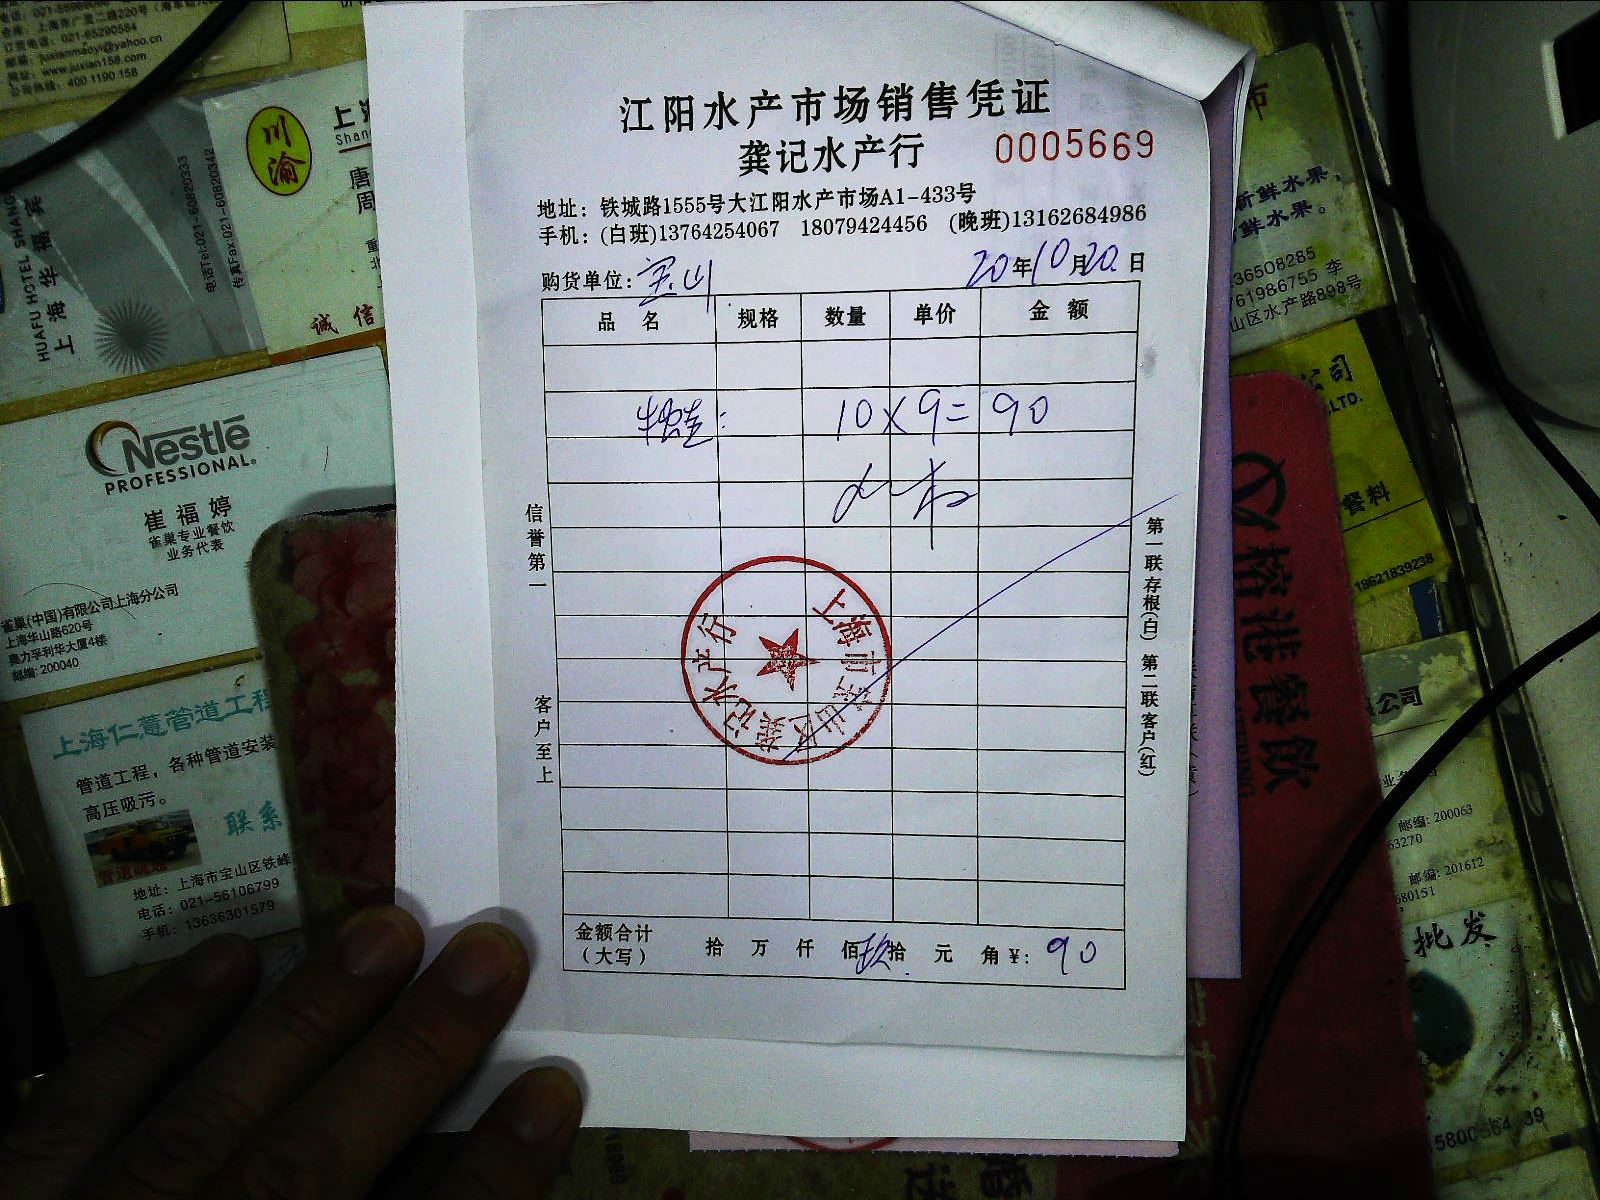 江阳水产市场销售凭证
龚记水产行 0005669
地址：铁城路1555号大江阳水产市场A1-433号
手机：(白班)13764254067 18079424456 (晚班)13162684986
购货单位：宝山 20年10月20日
品名 规格 数量 单价 金额
10×9=90
信誉第一
客户至上
第一联存根(白) 第二联客户(红)
上海市宝山区龚记水产行
金额合计
(大写) 拾 万 仟 佰玖拾 元 角 ¥: 90
订货电话：021-65290584
邮箱：juxianmaoyi@yahoo.cn
网址：www.juxian158.com
公司热线：400 1190 158
HUAFU HOTEL SHANG
上海华福宾
电话Tel:021-60820333
传真Fax:021-60820342
川渝
上海
Shan
唐
周
诚信
Nestlé
PROFESSIONAL
崔福婷
雀巢专业餐饮
业务代表
雀巢(中国)有限公司上海分公司
上海华山路620号
奥力孚利华大厦4楼
邮编：200040
上海仁薏管道工程
管道工程，各种管道安装
高压吸污。
联系
地址：上海市宝山区铁峰
电话：021-56106799
手机：13636301579
市
新鲜水果，
鲜水果。
36508285
761986755 李
山区水产路898号
公司
LTD.
餐料
18621839238
榕港餐飲
公司
邮编：200063
63270
邮编：201612
680151
批发